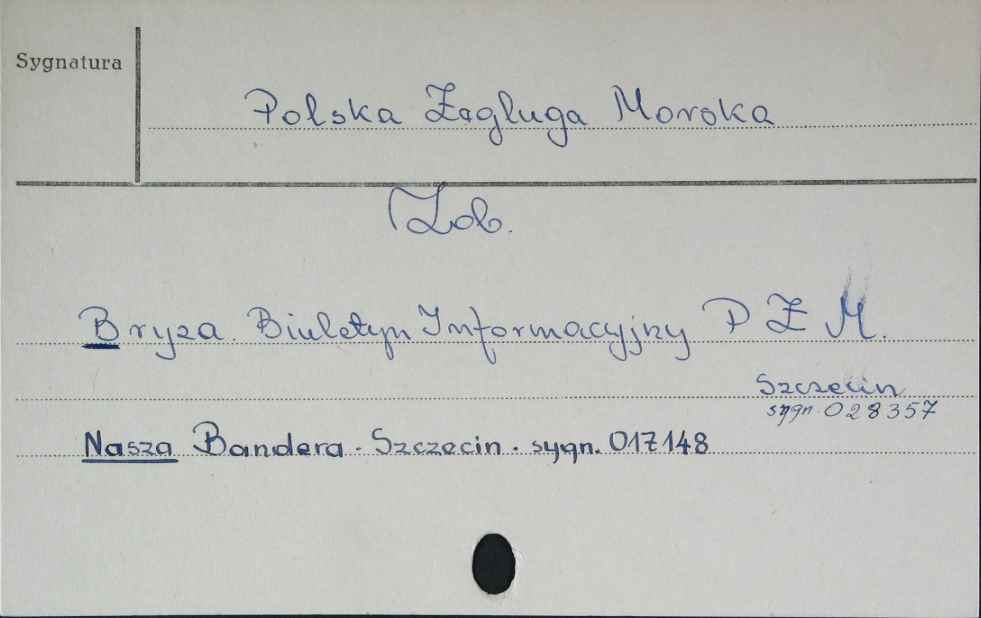 Sygnatura
Polska Żegluga Morska
Zob.
Bryza. Biuletyn Informacyjny P Ż M.
Szczecin
sygn. 028357
Nasza Bandera. Szczecin. sygn. 017148